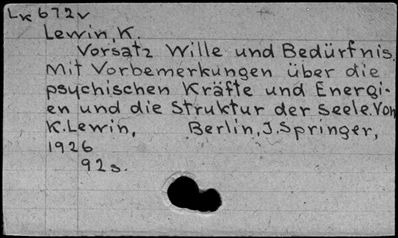 Lk 672v
Lewin, K.
Vorsatz Wille und Bedürfnis.
Mit Vorbemerkungen über die
psychischen Kräfte und Energi-
en und die Struktur der Seele. Von
K. Lewin, Berlin, J. Springer,
1926
92 s.